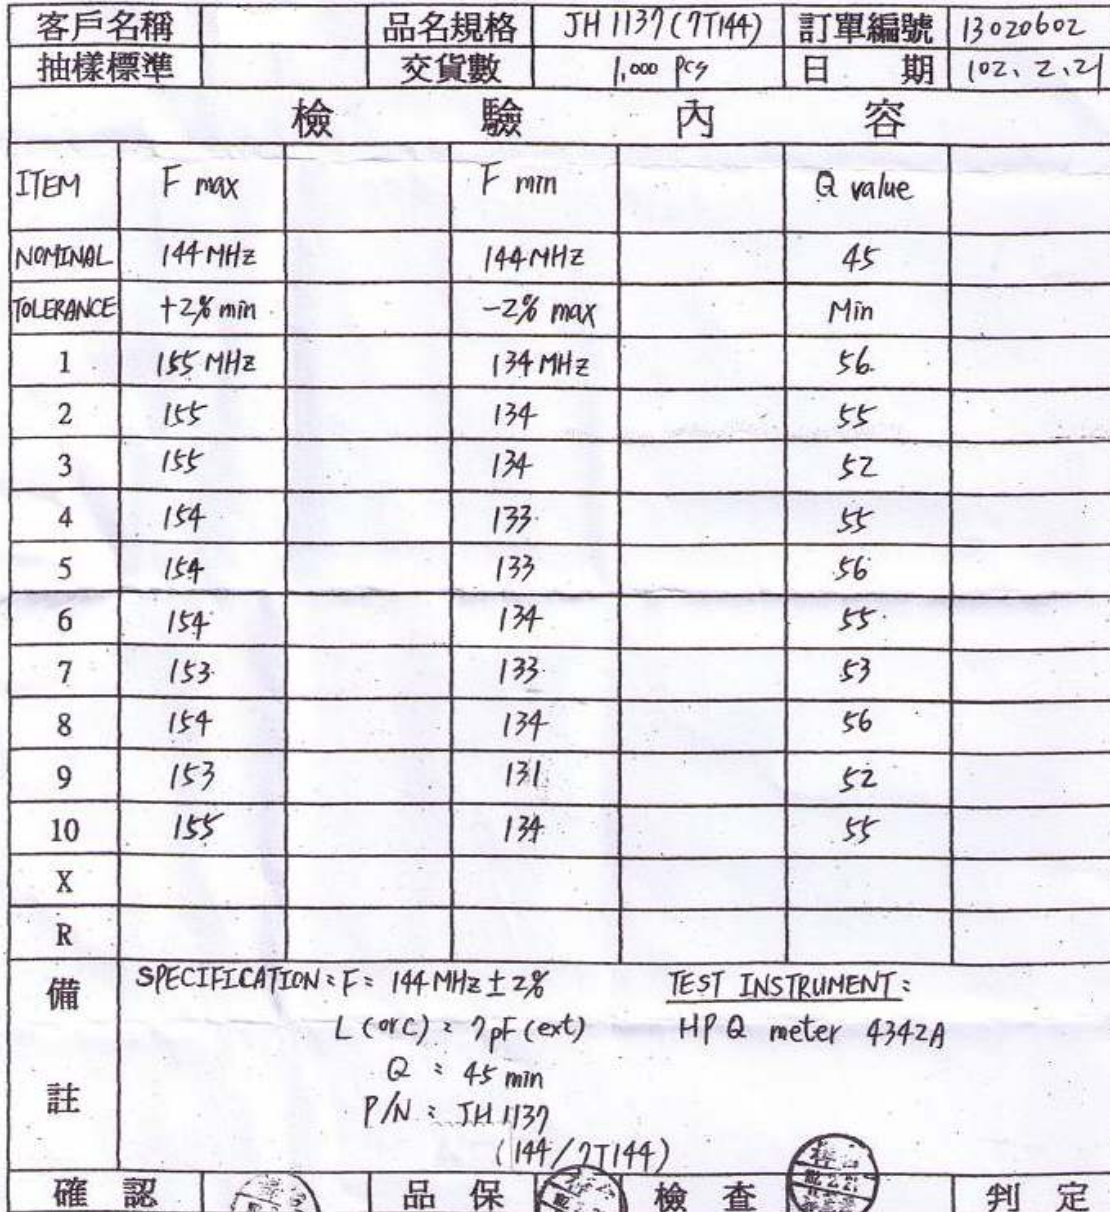 客戶名稱 品名規格 JH 1137(7T144) 訂單編號 13020602
抽樣標準 交貨數 1,000 pcs 日 期 102、2、21
檢 驗 內 容
ITEM F max F min Q value
NOMINAL 144 MHz 144 MHz 45
TOLERANCE +2% min -2% max Min
1 155 MHz 134 MHz 56
2 155 134 55
3 155 134 52
4 154 133 55
5 154 133 56
6 154 134 55
7 153 133 53
8 154 134 56
9 153 131 52
10 155 134 55
X
R
備 註
SPECIFICATION: F: 144 MHz ± 2% TEST INSTRUMENT:
L (or C) : 7 pF (ext) HP Q meter 4342A
Q : 45 min
P/N : JH 1137
(144/7T144)
確 認 品 保 檢 查 判 定